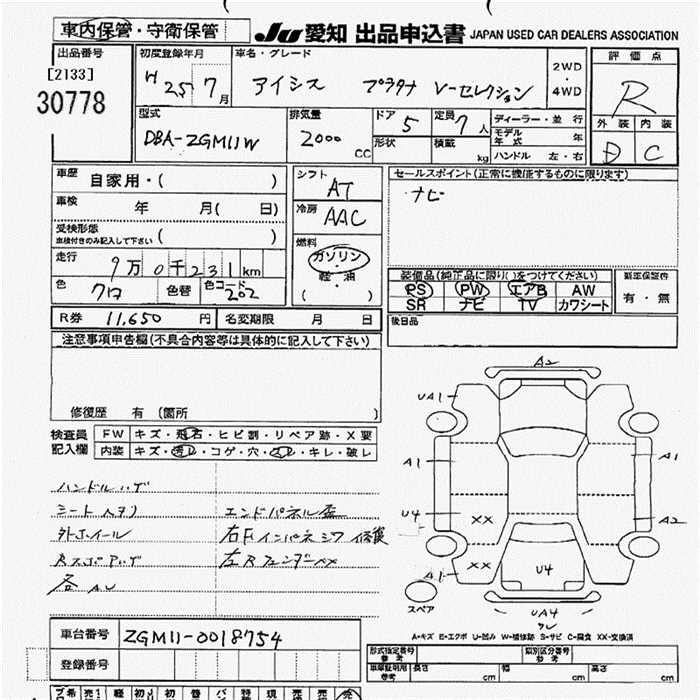 車内保管・守衛保管 JU 愛知 出品申込書 JAPAN USED CAR DEALERS ASSOCIATION
出品番号 [2133] 30778
初度登録年月 H 25 7月
車名・グレード アイシス プラタナ V-セレクション
2WD ・ 4WD
評価点 R
外装 D 内装 C
型式 DBA-ZGM11W
排気量 2000 CC
ドア 5
形状
定員 7人
積載 kg
ディーラー・並行
モデル年式 年
ハンドル 左・右
車歴 自家用・( )
車検 年 月( 日)
受検形態 車検付きのみ記入して下さい ( )
走行 9万0千231km
色 クロ 色替 色コード 202
シフト AT
冷房 AAC
燃料 ガソリン 軽・油 ( )
セールスポイント(正常に機能するものに限ります)
ナビ
装備品(純正品に限り()をつけてください)
PS PW エアB AW
SR ナビ TV カワシート
新車保証書 有・無
後日品
R券 11,650 円 名変期限 月 日
注意事項申告欄(不具合内容等は具体的に記入して下さい)
修復歴 有 (箇所 )
検査員記入欄
FW キズ・飛石・ヒビ割・リペア跡・X要
内装 キズ・汚レ・コゲ・穴・スレ・キレ・破レ
ハンドルハゲ
シート
エンドパネル歪
右Fインパネシワ 修復
左RフェンダーXX
各AU
A2
UA1
A1
A1
U4
XX
A2
XX
A1
U4
UA4
スペア
A-キズ E-エクボ U-凹み W-補修跡 S-サビ C-腐食 XX-交換済
車台番号 ZGM11-0018754
登録番号
形式指定番号 参考
類別区分番号 参考
車庫証明用 参考 長さ cm 幅 cm 高さ cm